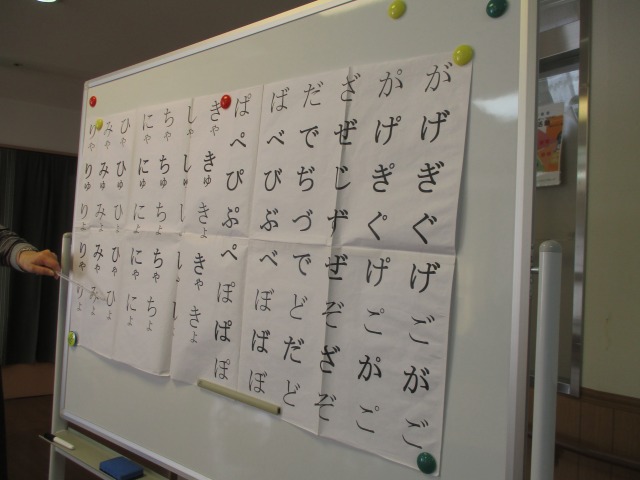 がげぎぐげごがご
か゚け゚き゚く゚け゚こ゚か゚こ゚
ざぜじずぜぞざぞ
だでぢづでどだど
ばべびぶべぼばぼ
ぱぺぴぷぺぽぱぽ
きゃきゅきょきゃきょ
しゃしゅしょしゃしょ
ちゃちゅちょちゃちょ
にゃにゅにょにゃにょ
ひゃひゅひょひゃひょ
みゃみゅみょみゃみょ
りゃりゅりょりゃりょ